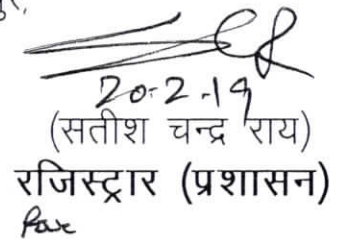 20-2-19
(सतीश चन्द्र राय)
रजिस्ट्रार (प्रशासन)